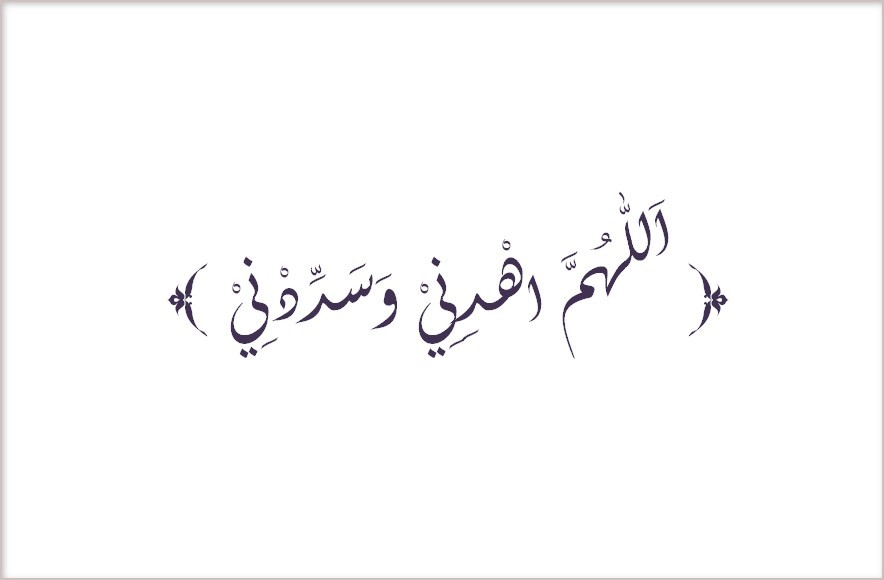 ﴿اَللّٰهُمَّ اهْدِنِيْ وَسَدِّدْنِيْ﴾